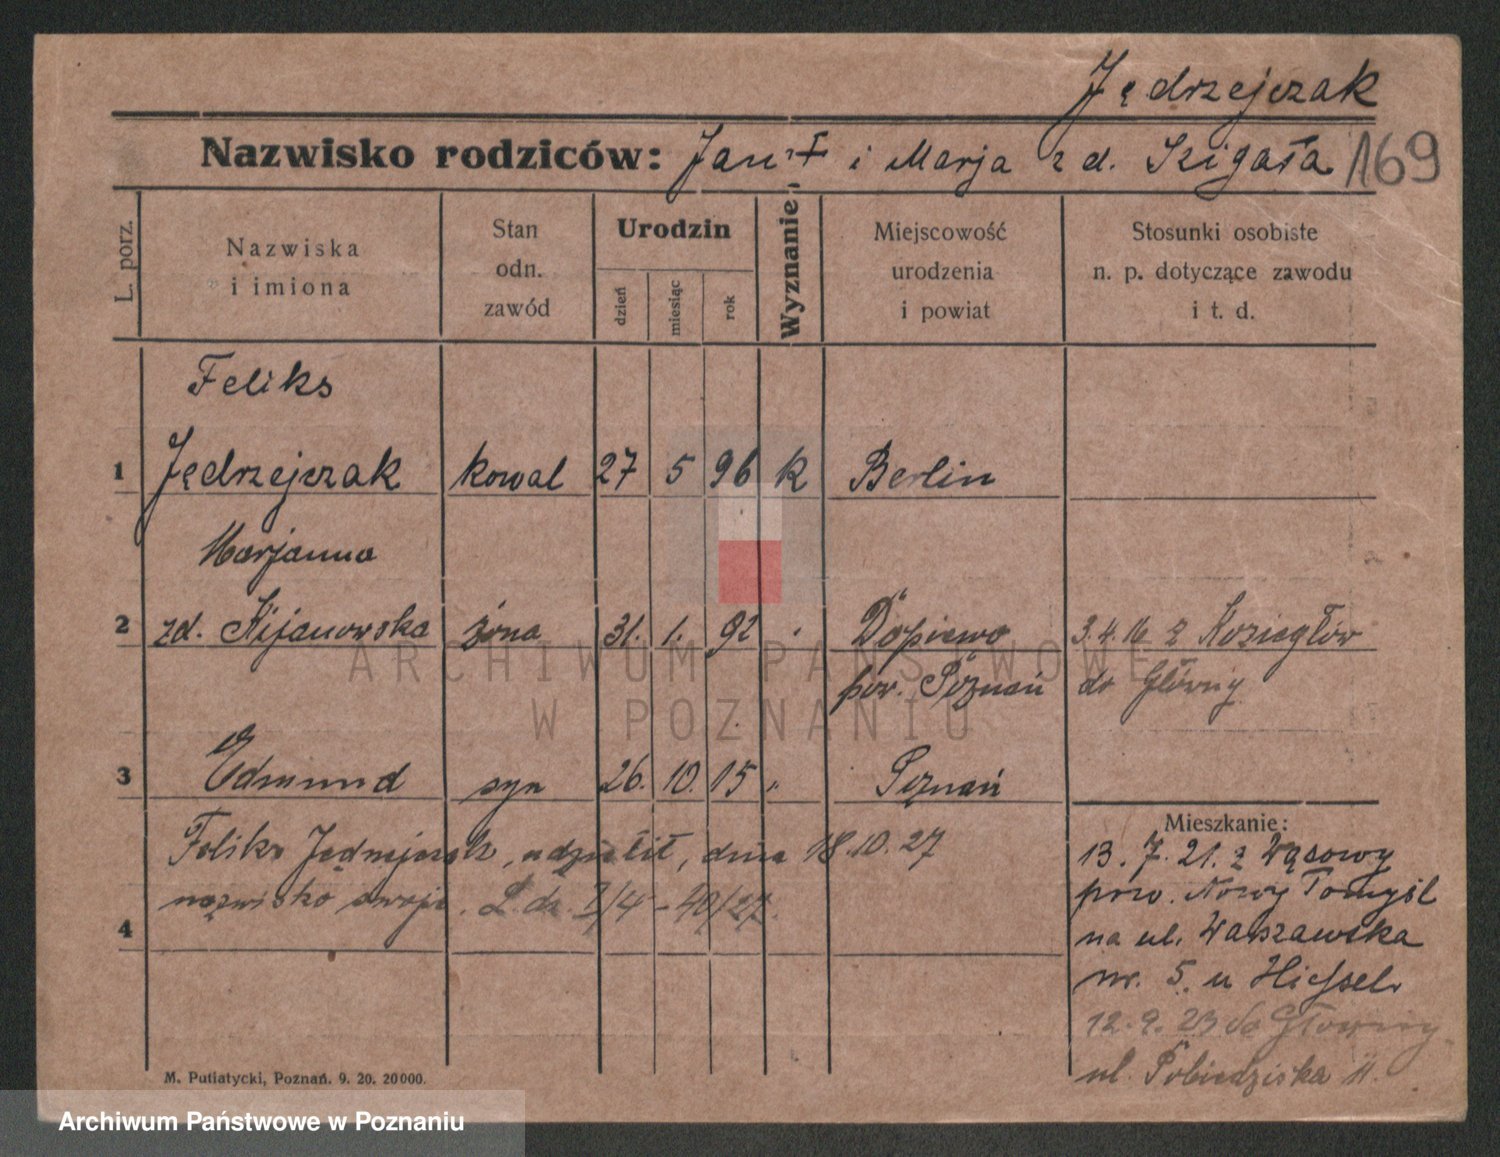 Jędrzejczak
Nazwisko rodziców: Jan i Marja z d. Szigała 169
L. porz.
Nazwiska
i imiona
Stan
odn.
zawód
Urodzin
dzień
miesiąc
rok
Wyznanie
Miejscowość
urodzenia
i powiat
Stosunki osobiste
n. p. dotyczące zawodu
i t. d.
Feliks
1 Jędrzejczak kowal 27 5 96 K Berlin
Marjanna
2 zd. Kijanowska żona 31. 1. 92 Dopiewo 3.4.16 z Koziegłów
pow. Poznań do Główny
3 Edmund syn 26. 10. 15 " Poznań
Feliks Jędrzejczak, dnia 18.10.27
nazwisko swoje. L. dz. 40/27.
4
Mieszkanie:
13. 7. 21. z Wąsowy
pow. Nowy Tomyśl
na ul. Warszawska
nr. 5. u
12. 9. 23 do Główny
ul. Pobiedziska 11.
M. Putiatycki, Poznań. 9. 20. 20 000.
ARCHIWUM PAŃSTWOWE
W POZNANIU
Archiwum Państwowe w Poznaniu